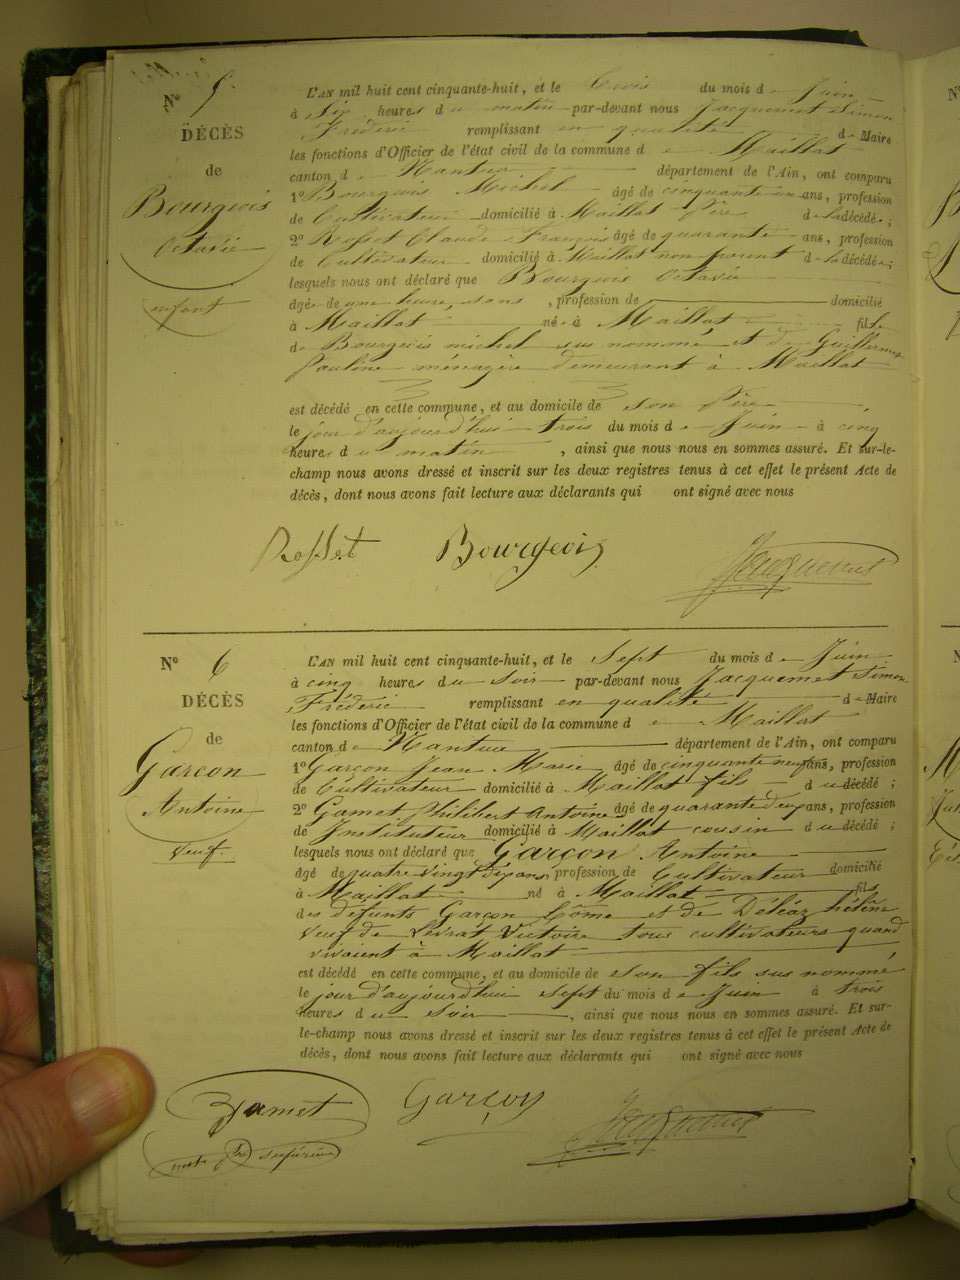 N° 5
DÉCÈS
de
Bourgeois
Octavie
enfant
L'AN mil huit cent cinquante-huit, et le trois du mois de Juin
à Six heures du matin par-devant nous Jacquemet Simon
Fréderic remplissant en qualité de Maire
les fonctions d'Officier de l'état civil de la commune de Maillat
canton de Nantua département de l'Ain, ont comparu
1° Bourgeois Michel âgé de cinquante un ans, profession
de Cultivateur domicilié à Maillat Père de la décédée;
2° Rosset Claude François âgé de quarante ans, profession
de Cultivateur domicilié à Maillat non parent de la décédée;
lesquels nous ont déclaré que Bourgeois Octavie
âgée de une heure, sans, profession de domicilié
à Maillat née à Maillat fille
de Bourgeois michel sus nommé et de Guillermet
Pauline ménagère demeurant à Maillat
est décédé en cette commune, et au domicile de son Père
le jour d'aujourd'hui trois du mois de Juin à cinq
heures du matin, ainsi que nous nous en sommes assuré. Et sur-le-
champ nous avons dressé et inscrit sur les deux registres tenus à cet effet le présent Acte de
décès, dont nous avons fait lecture aux déclarants qui ont signé avec nous
Rosset Bourgeois Jacquemet
N° 6
DÉCÈS
de
Garçon
Antoine
Veuf.
L'AN mil huit cent cinquante-huit, et le Sept du mois de Juin
à cinq heures du Soir par-devant nous Jacquemet Simon
Fréderic remplissant en qualité de Maire
les fonctions d'Officier de l'état civil de la commune de Maillat
canton de Nantua département de l'Ain, ont comparu
1° Garçon Jean Marie âgé de cinquante neuf ans, profession
de Cultivateur domicilié à Maillat fils du décédé;
2° Gamet Philibert Antoine âgé de quarante deux ans, profession
de Instituteur domicilié à Maillat cousin du décédé;
lesquels nous ont déclaré que Garçon Antoine
âgé de quatre vingt dix ans, profession de Cultivateur domicilié
à Maillat né à Maillat fils
des défunts Garçon Côme et de Déléaz hélène
veuf de Levrat Victoire tous cultivateurs quand
vivaient à Maillat
est décédé en cette commune, et au domicile de son fils sus nommé
le jour d'aujourd'hui sept du mois de Juin à trois
heures du soir, ainsi que nous nous en sommes assuré. Et sur-
le-champ nous avons dressé et inscrit sur les deux registres tenus à cet effet le présent Acte de
décès, dont nous avons fait lecture aux déclarants qui ont signé avec nous
Gamet Garçon Jacquemet